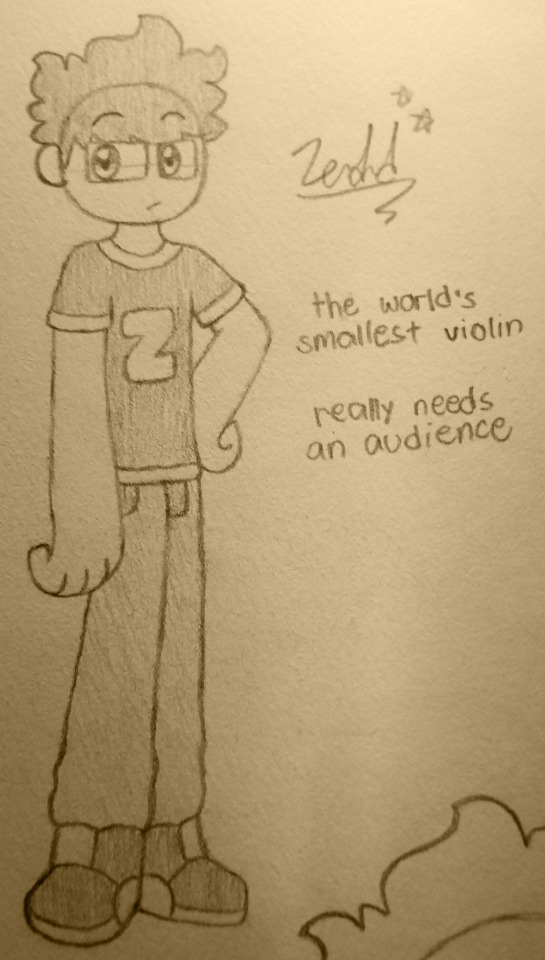 Z
the world's
smallest violin
really needs
an audience